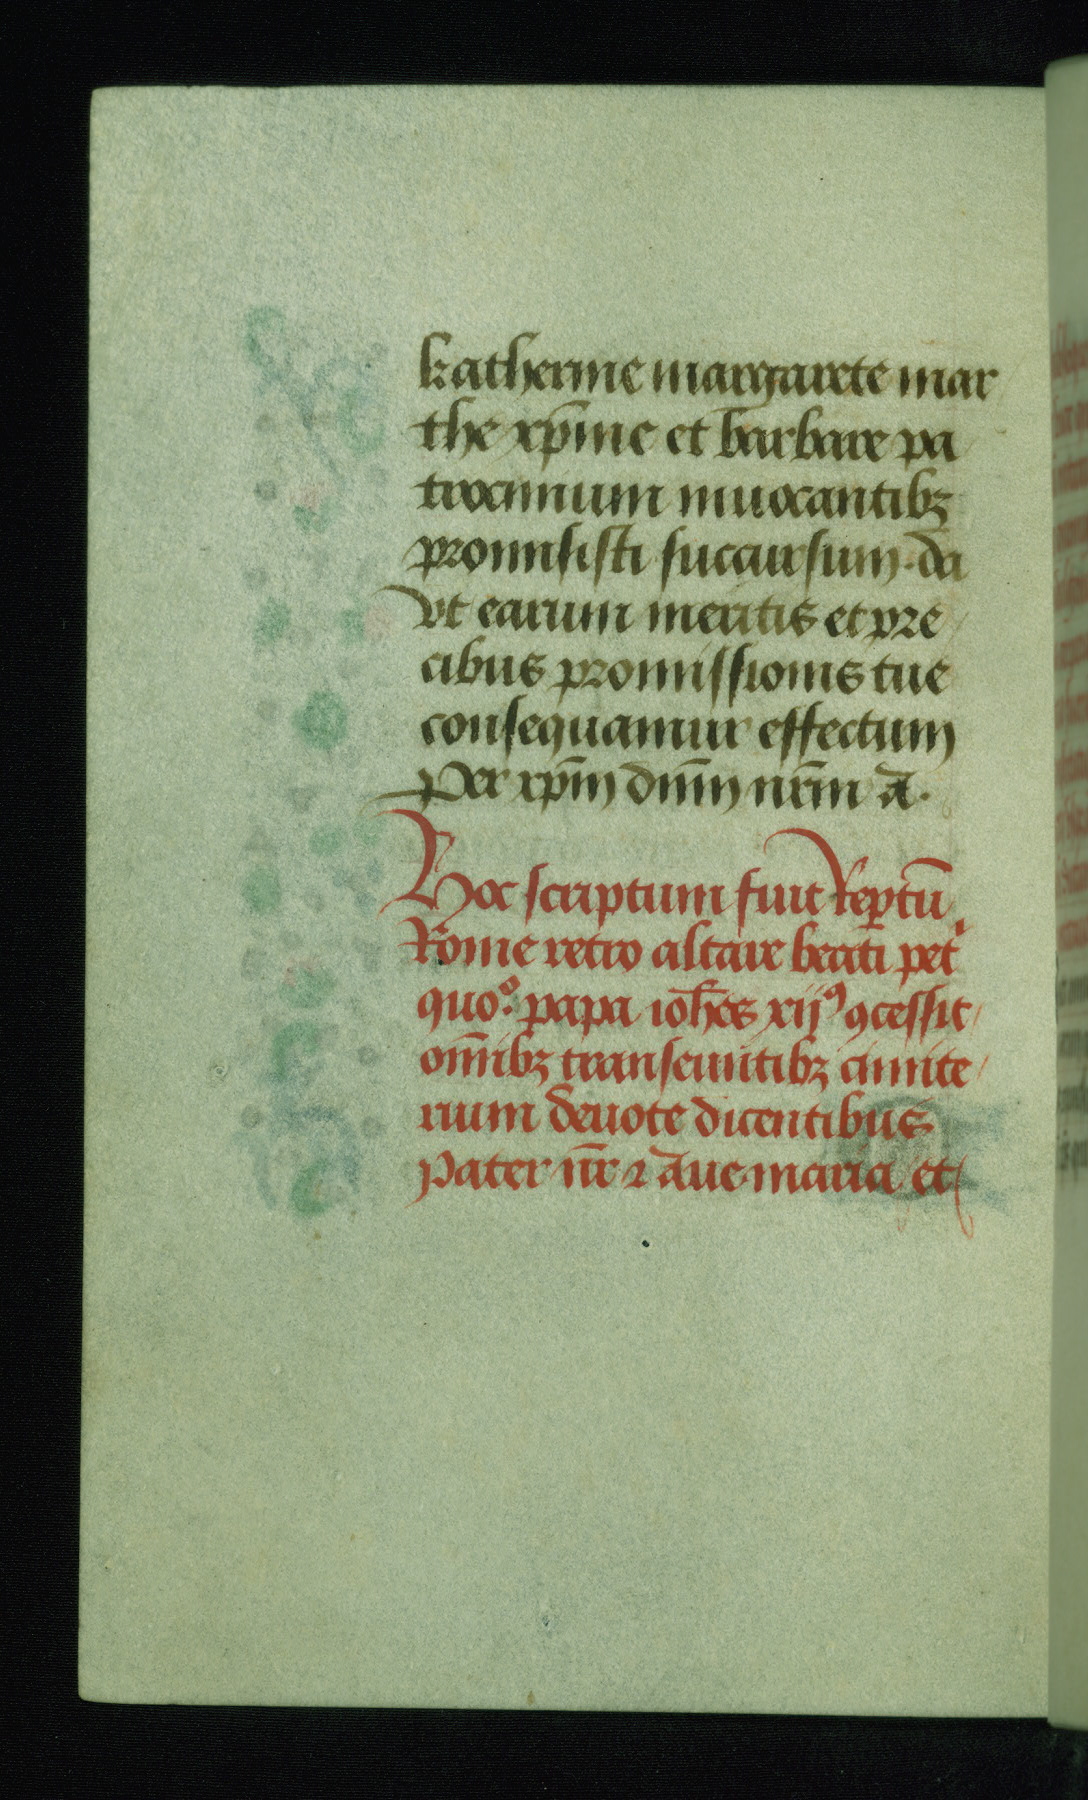 katherine margarete mar
the xp̄ine et barbare pa
trocinium inuocantibꝫ
promisisti succursum· da
vt earum meritis et pre
cibus promissionis tue
consequamur effectum
Per xp̄m dn̄m nr̄m ā.
Hoc scriptum fuit Reꝑtū
Rome retro altare beati pet͛
quoº. papa ioh̄es xijꝰ ꝯcessit
om̄ibꝫ transeuntibꝫ cimite
rium deuote dicentibus
Pater nr̄ ⁊ Aue maria et